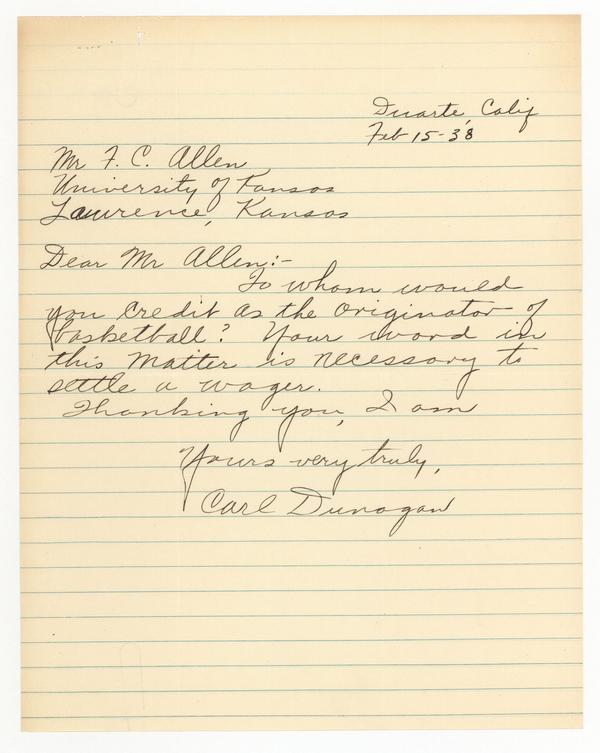 Duarte, Calif
Feb 15-38
Mr F. C. Allen
University of Kansas
Lawrence, Kansas
Dear Mr Allen:-
To whom would
you credit as the originator of
basketball? Your word in
this matter is necessary to
settle a wager.
Thanking you, I am
Yours very truly,
Carl Dunagan